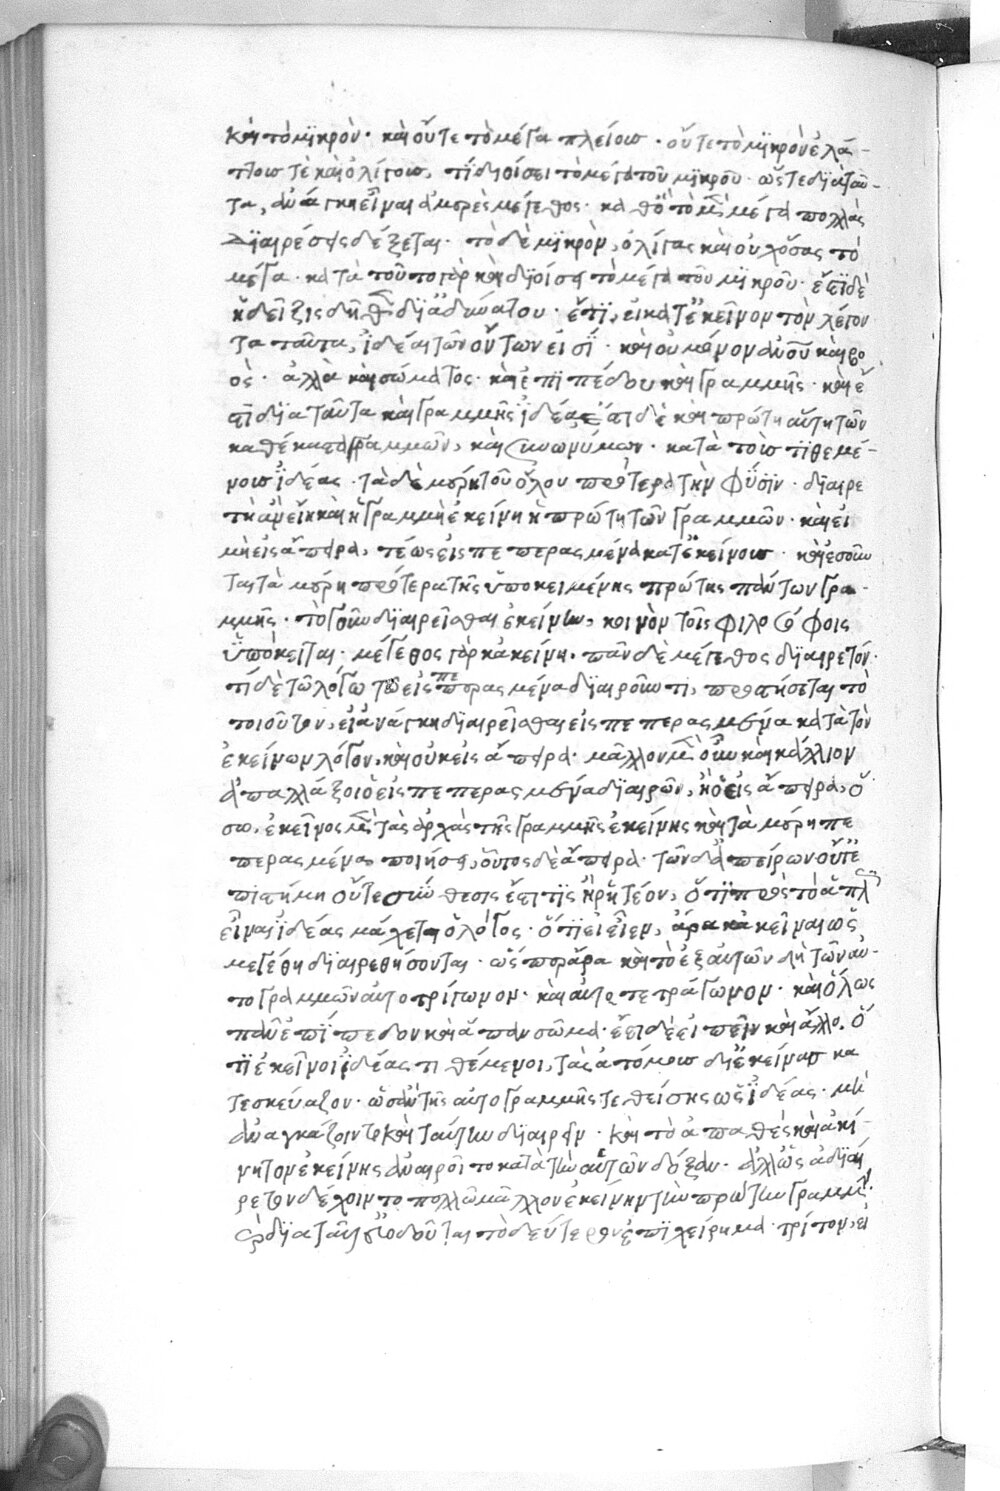 καὶ τὸ μϊκρὸν· καὶ οὔτε τὸ μέγα πλείους· οὔτε τὸ μϊκρὸν ἐλά-
ττους τὲ καὶ ὀλίγους, τί διοίσει τὸ μέγα τοῦ μϊκροῦ· ὥστε διὰ ταῦ-
τα, ἀνάγκη εἶναι ἀμερὲς μέγεθος· καθὃ τὸ μὲν μέγα πολλὰς
διαιρέσεις δέξεται· τὸ δὲ μϊκρὸν, ὀλίγας καὶ οὐχ ὅσας τὸ
μέγα· κατὰ τοῦτο γὰρ καὶ διοίσει τὸ μέγα τοῦ μϊκροῦ· ἔστι δὲ
ἡ δεῖξις διὰ ἀδυνάτου· ἔτϊ, εἰ κατ' ἐκεῖνον τὸν λέγον
τα ταῦτα, ἰδέαι τῶν ὄντων εἰσὶ· καὶ οὐ μόνον ἀνοῦ καὶ βο
ὸς· ἀλλὰ καὶ σώματος· καὶ ἐπϊπέδου καὶ γραμμῆς· καὶ ἔ
στϊ διὰ ταῦτα καὶ γραμμῆς ἰδέα· ἔστι δὲ καὶ πρώτη αὕτη τῶν
καθέκαστα γραμμῶν, καὶ συνωνύμων· κατὰ τοὺς τϊθεμέ-
νους ἰδέας· τὰ δὲ μέρη τοῦ ὅλου πρότερα τὴν φύσϊν· διαιρε
τὴ ἂν εἴη καὶ ἡ γραμμὴ ἐκείνη ἡ πρώτη τῶν γραμμῶν· καὶ εἰ
μὴ εἰς ἄπειρα, τέως εἰς πεπερασμένα κατ' ἐκείνους· καὶ ἔσον
ται τὰ μέρη πρότερα τῆς ὑποκειμένης πρώτης πάντων γρα-
μμῆς· τὸ γοῦν διαιρεῖσθαι ἐκείνην, κοινὸν τοῖς φιλοσόφοις
ὑπόκειται· μέγεθος γὰρ κἀκείνη· πᾶν δὲ μέγεθος διαιρετόν·
τί δὲ τῶ λόγω τῶ εἰς πεπερασμένα διαιροῦντι, προστήσεται τὸ
τοιοῦτον, εἰ ἀνάγκη διαιρεῖσθαι εἰς πεπερασμένα κατὰ τὸν
ἐκείνων λόγον, καὶ οὐκ εἰς ἄπειρα· μᾶλλον μὲν οὖν καὶ κάλλιον
ἀπαλλάξοι ὁ εἰς πεπερασμένα διαιρῶν, ἢ ὁ εἰς ἄπειρα, ὅ
σω, ἐκεῖνος μὲν τὰς ἀρχὰς τῆς γραμμῆς ἐκείνης καὶ τὰ μέρη πε
περασμένα ποιήσει, οὗτος δὲ ἄπειρα· τῶν δ' ἀπείρων οὔτ' ἐ
πιστήμη οὔτε σύνθεσις ἔστϊ τϊς ἢ ῥητέον, ὅτϊ πρὸς τὸ ἁπλῶς
εἶναι ἰδέας μάχεται ὁ λόγος· ὅτϊ εἰ εἶεν, ἄρα κἀκεῖναι ὡς
μεγέθη διαιρεθήσονται· ὥσπερ ἄρα καὶ τὸ ἐξ αὐτῶν δὴ τῶν αὐ-
τογραμμῶν αὐτοτρίγωνον· καὶ αὐτοτετράγωνον· καὶ ὅλως
πᾶν ἐπίπεδον καὶ ἅπαν σῶμα· ἔστι δὲ εἰπεῖν καὶ ἄλλο· ὅ
τϊ ἐκεῖνοι ἰδέας τιθέμενοι, τὰς ἀτόμους δι' ἐκείνας κα
τεσκεύαζον· ὡς αὐτῆς αὐτογραμμῆς τεθείσης ὡς ἰδέας· μὴ
ἀναγκάζοιντο καὶ ταύτην διαιρεῖν· καὶ τὸ ἀπαθὲς καὶ ἀκί-
νητον ἐκείνης ἀναιροῖντο κατὰ τὴν αὐτῶν δόξαν· ἀλλ' ὡς ἀδιαί
ρετον δέχοιντο πολλῶ μᾶλλον ἐκείνην τὴν πρώτην γραμμήν·
διὰ ταῦτ' ἐκδοῦται τὸ δεύτερον ἐπϊχείρημα· τρίτον, εἰ